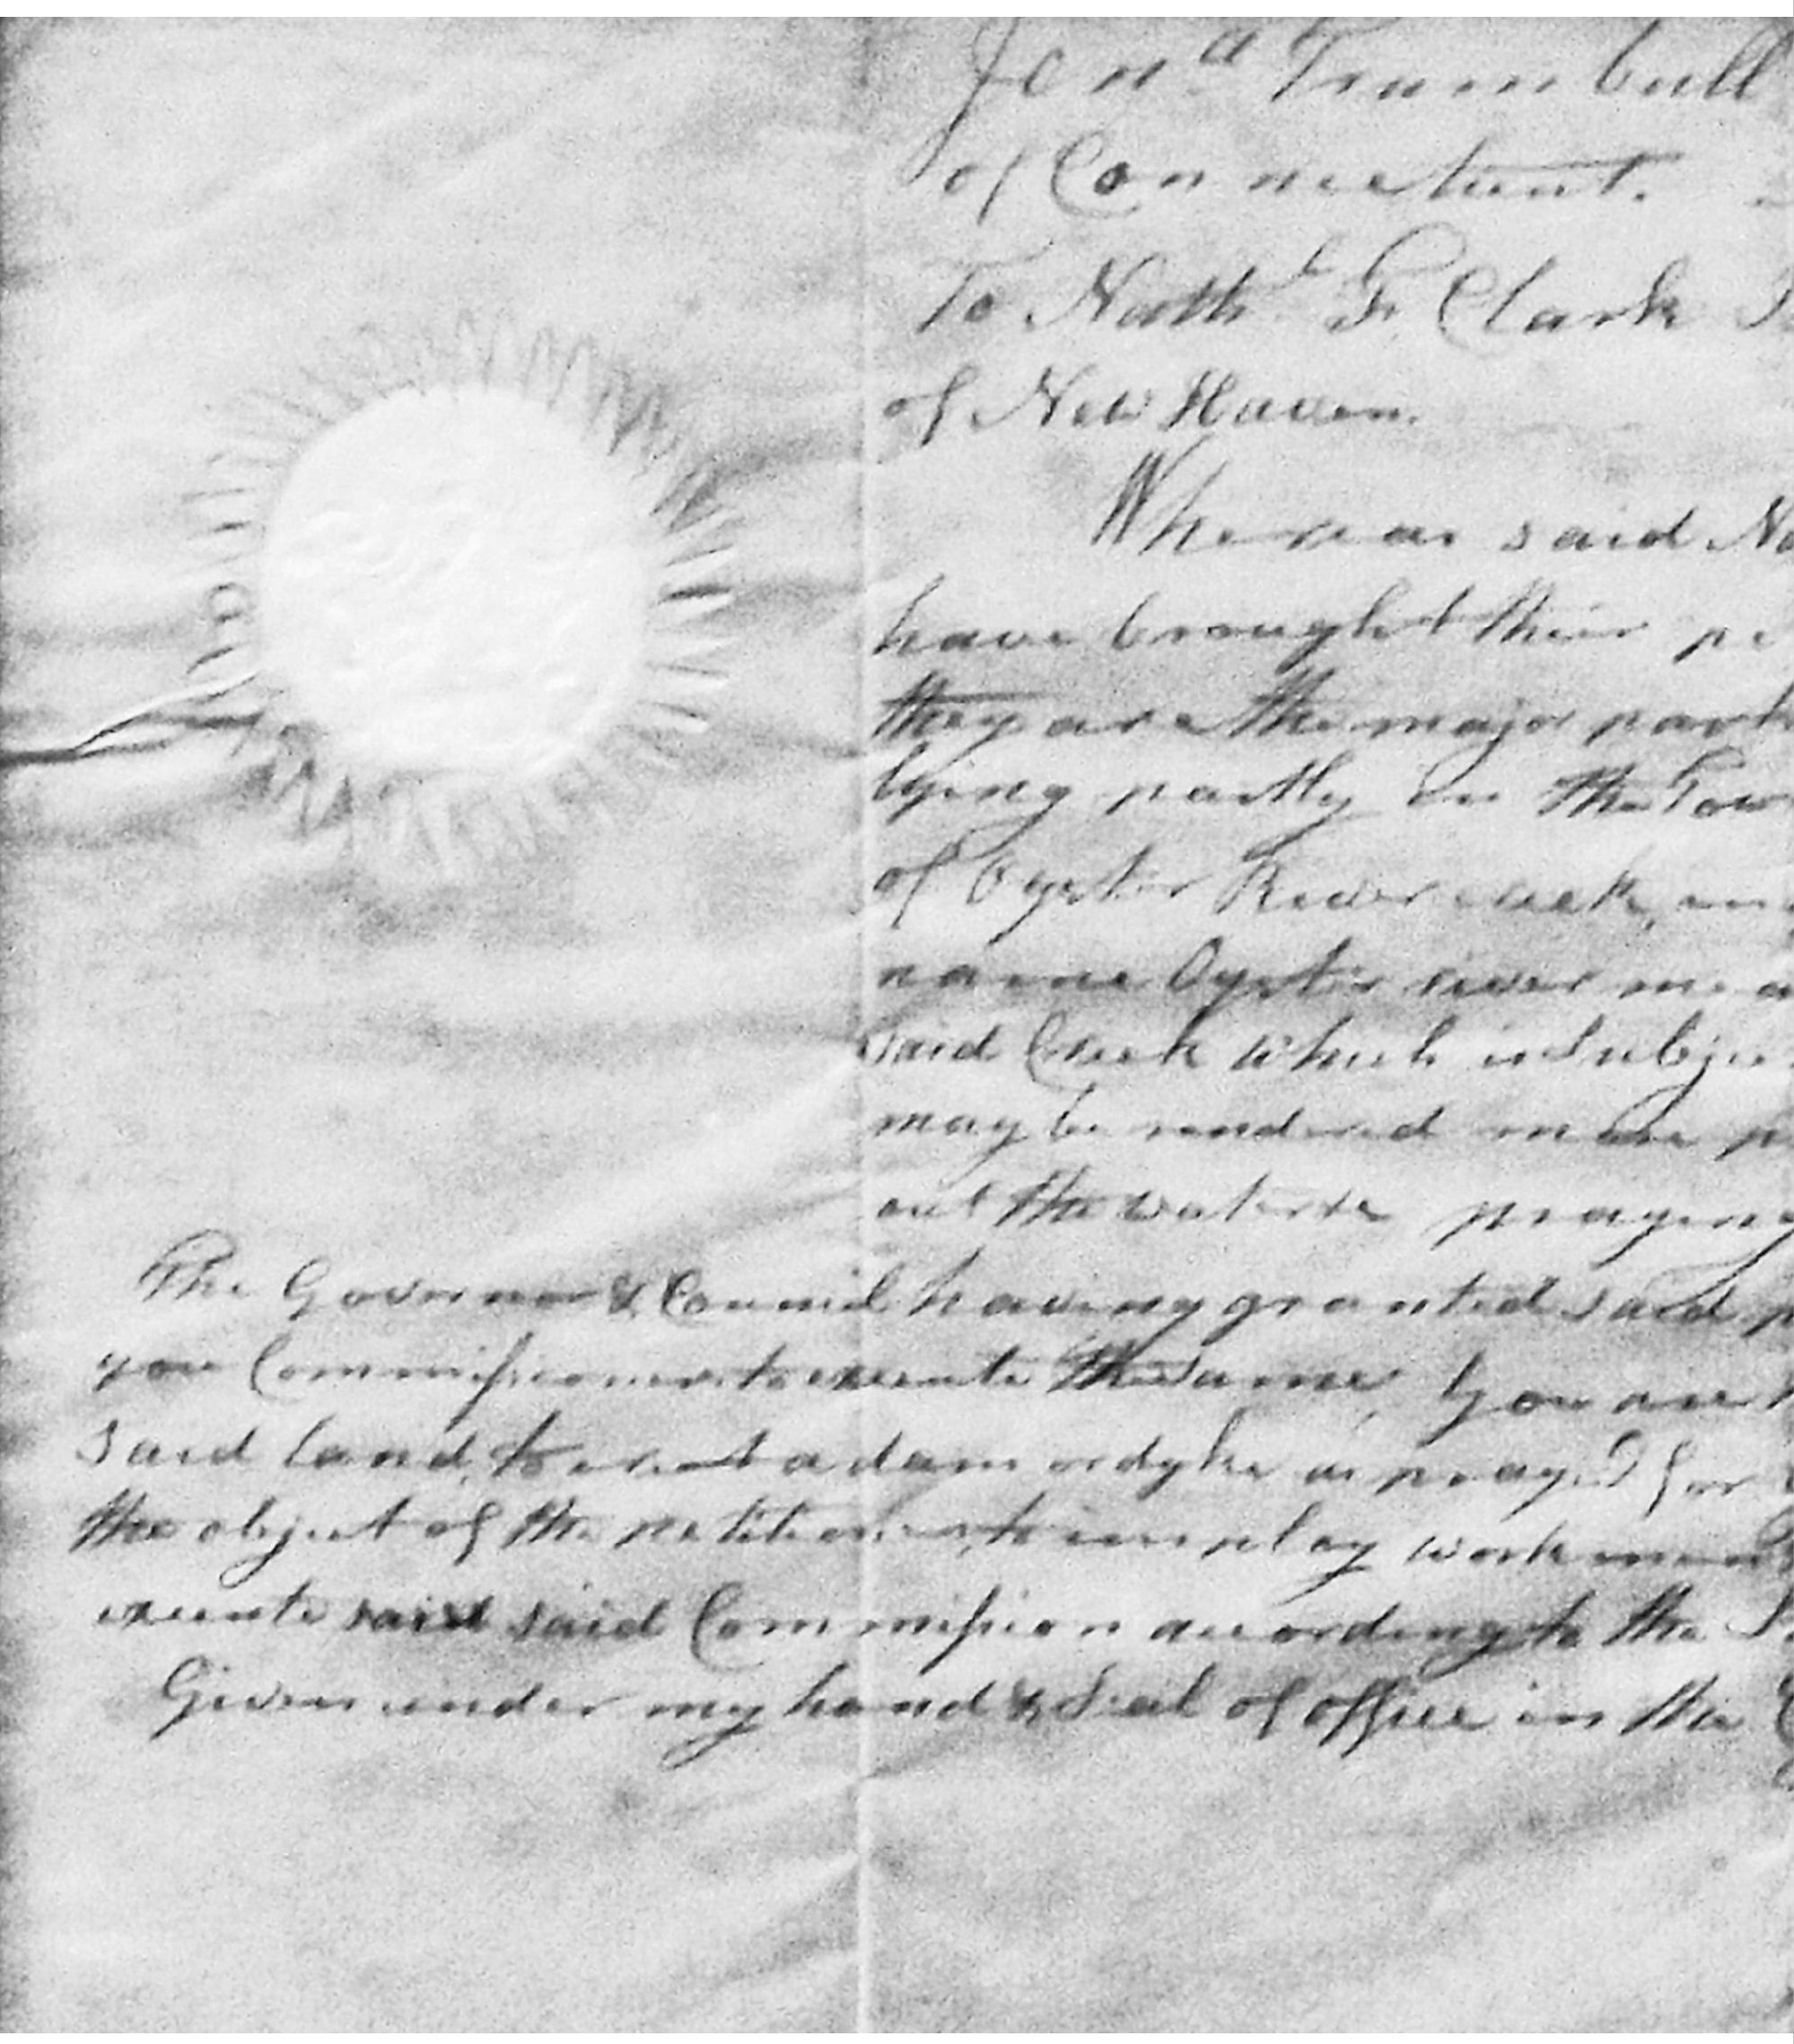 Jon^a Trumbull
of Connecticut.
To Nath^l F. Clark
of New Haven.
Whereas said
have brought their
they are the major part
lying partly in the
of Oyster River creek,
name Oyster river
said Creek which is
may be rendered more
out the waters praying
The Governor & Council having granted said
you Commissioners to execute the same, You are
said land, to erect a dam or dyke as pray.d for
the object of the petitioners, to employ workmen
execute said said Commission according to the
Given under my hand & Seal of office in the